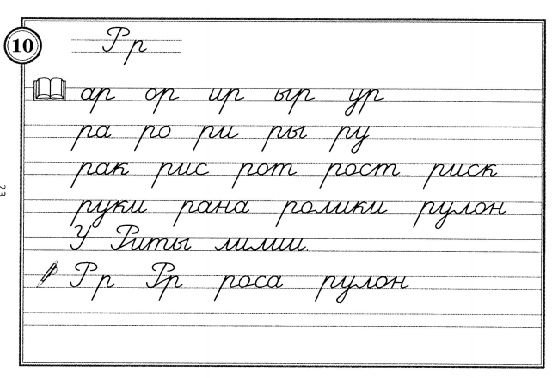 10
Рр
ар ор ир ыр ур
ра ро ри ры ру
рак рис рот рост риск
руки рана ролики рулон
У Риты лилии.
Рр Рр роса рулон
23